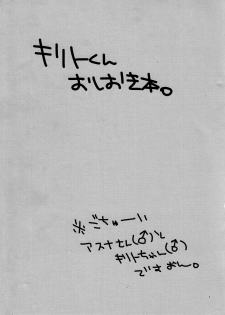 キリトくん
おしおき本。
※ごちゅーい
アスナさん(♂)と
キリトちゃん(♂)
できおん。